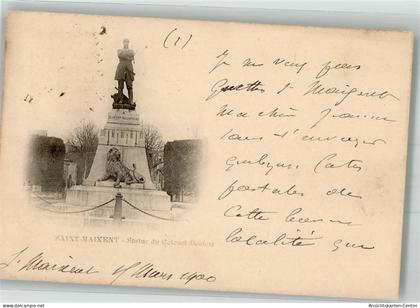 (1)
Je ne veux pas
quitter St Maixent
ma chère
sans t'envoyer
quelques cartes
postales de
cette
localité que
SAINT-MAIXENT - Statue du Colonel Denfert
St Maixent 15 Mars 1900
www.ansichtskarten-center.de